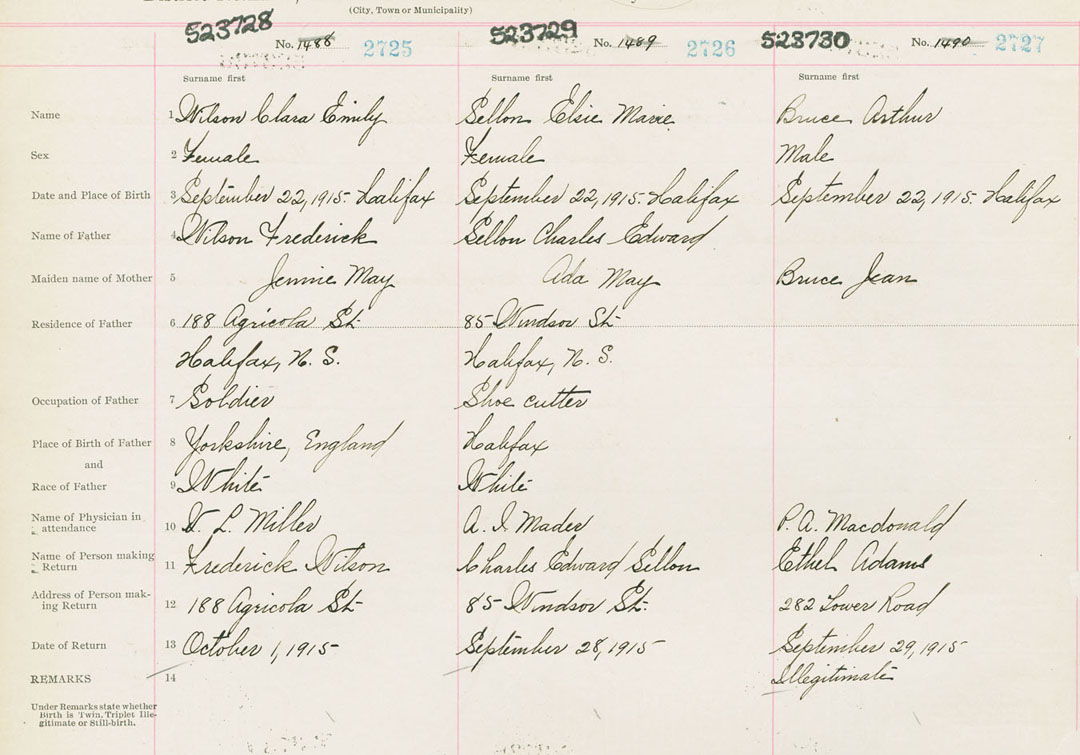 (City, Town or Municipality)
523728 523729 523730
No. 1488 2725 No. 1489 2726 No. 1490 2727
Surname first Surname first Surname first
Name 1 Wilson Clara Emily Sellon Elsie Marie Bruce Arthur
Sex 2 Female Female Male
Date and Place of Birth 3 September 22, 1915. Halifax September 22, 1915. Halifax September 22, 1915. Halifax
Name of Father 4 Wilson Frederick Sellon Charles Edward
Maiden name of Mother 5 Jennie May Ada May Bruce Jean
Residence of Father 6 188 Agricola St. 85 Windsor St.
Halifax, N. S. Halifax, N. S.
Occupation of Father 7 Soldier Shoe cutter
Place of Birth of Father 8 Yorkshire, England Halifax
and
Race of Father 9 White White
Name of Physician in
attendance 10 L. Miller A. I. Mader P. A. Macdonald
Name of Person making
Return 11 Frederick Wilson Charles Edward Sellon Ethel Adams
Address of Person mak-
ing Return 12 188 Agricola St. 85 Windsor St. 282 Lower Road
Date of Return 13 October 1, 1915 September 28, 1915 September 29, 1915
REMARKS 14 Illegitimate
Under Remarks state whether
Birth is Twin, Triplet Ille-
gitimate or Still-birth.